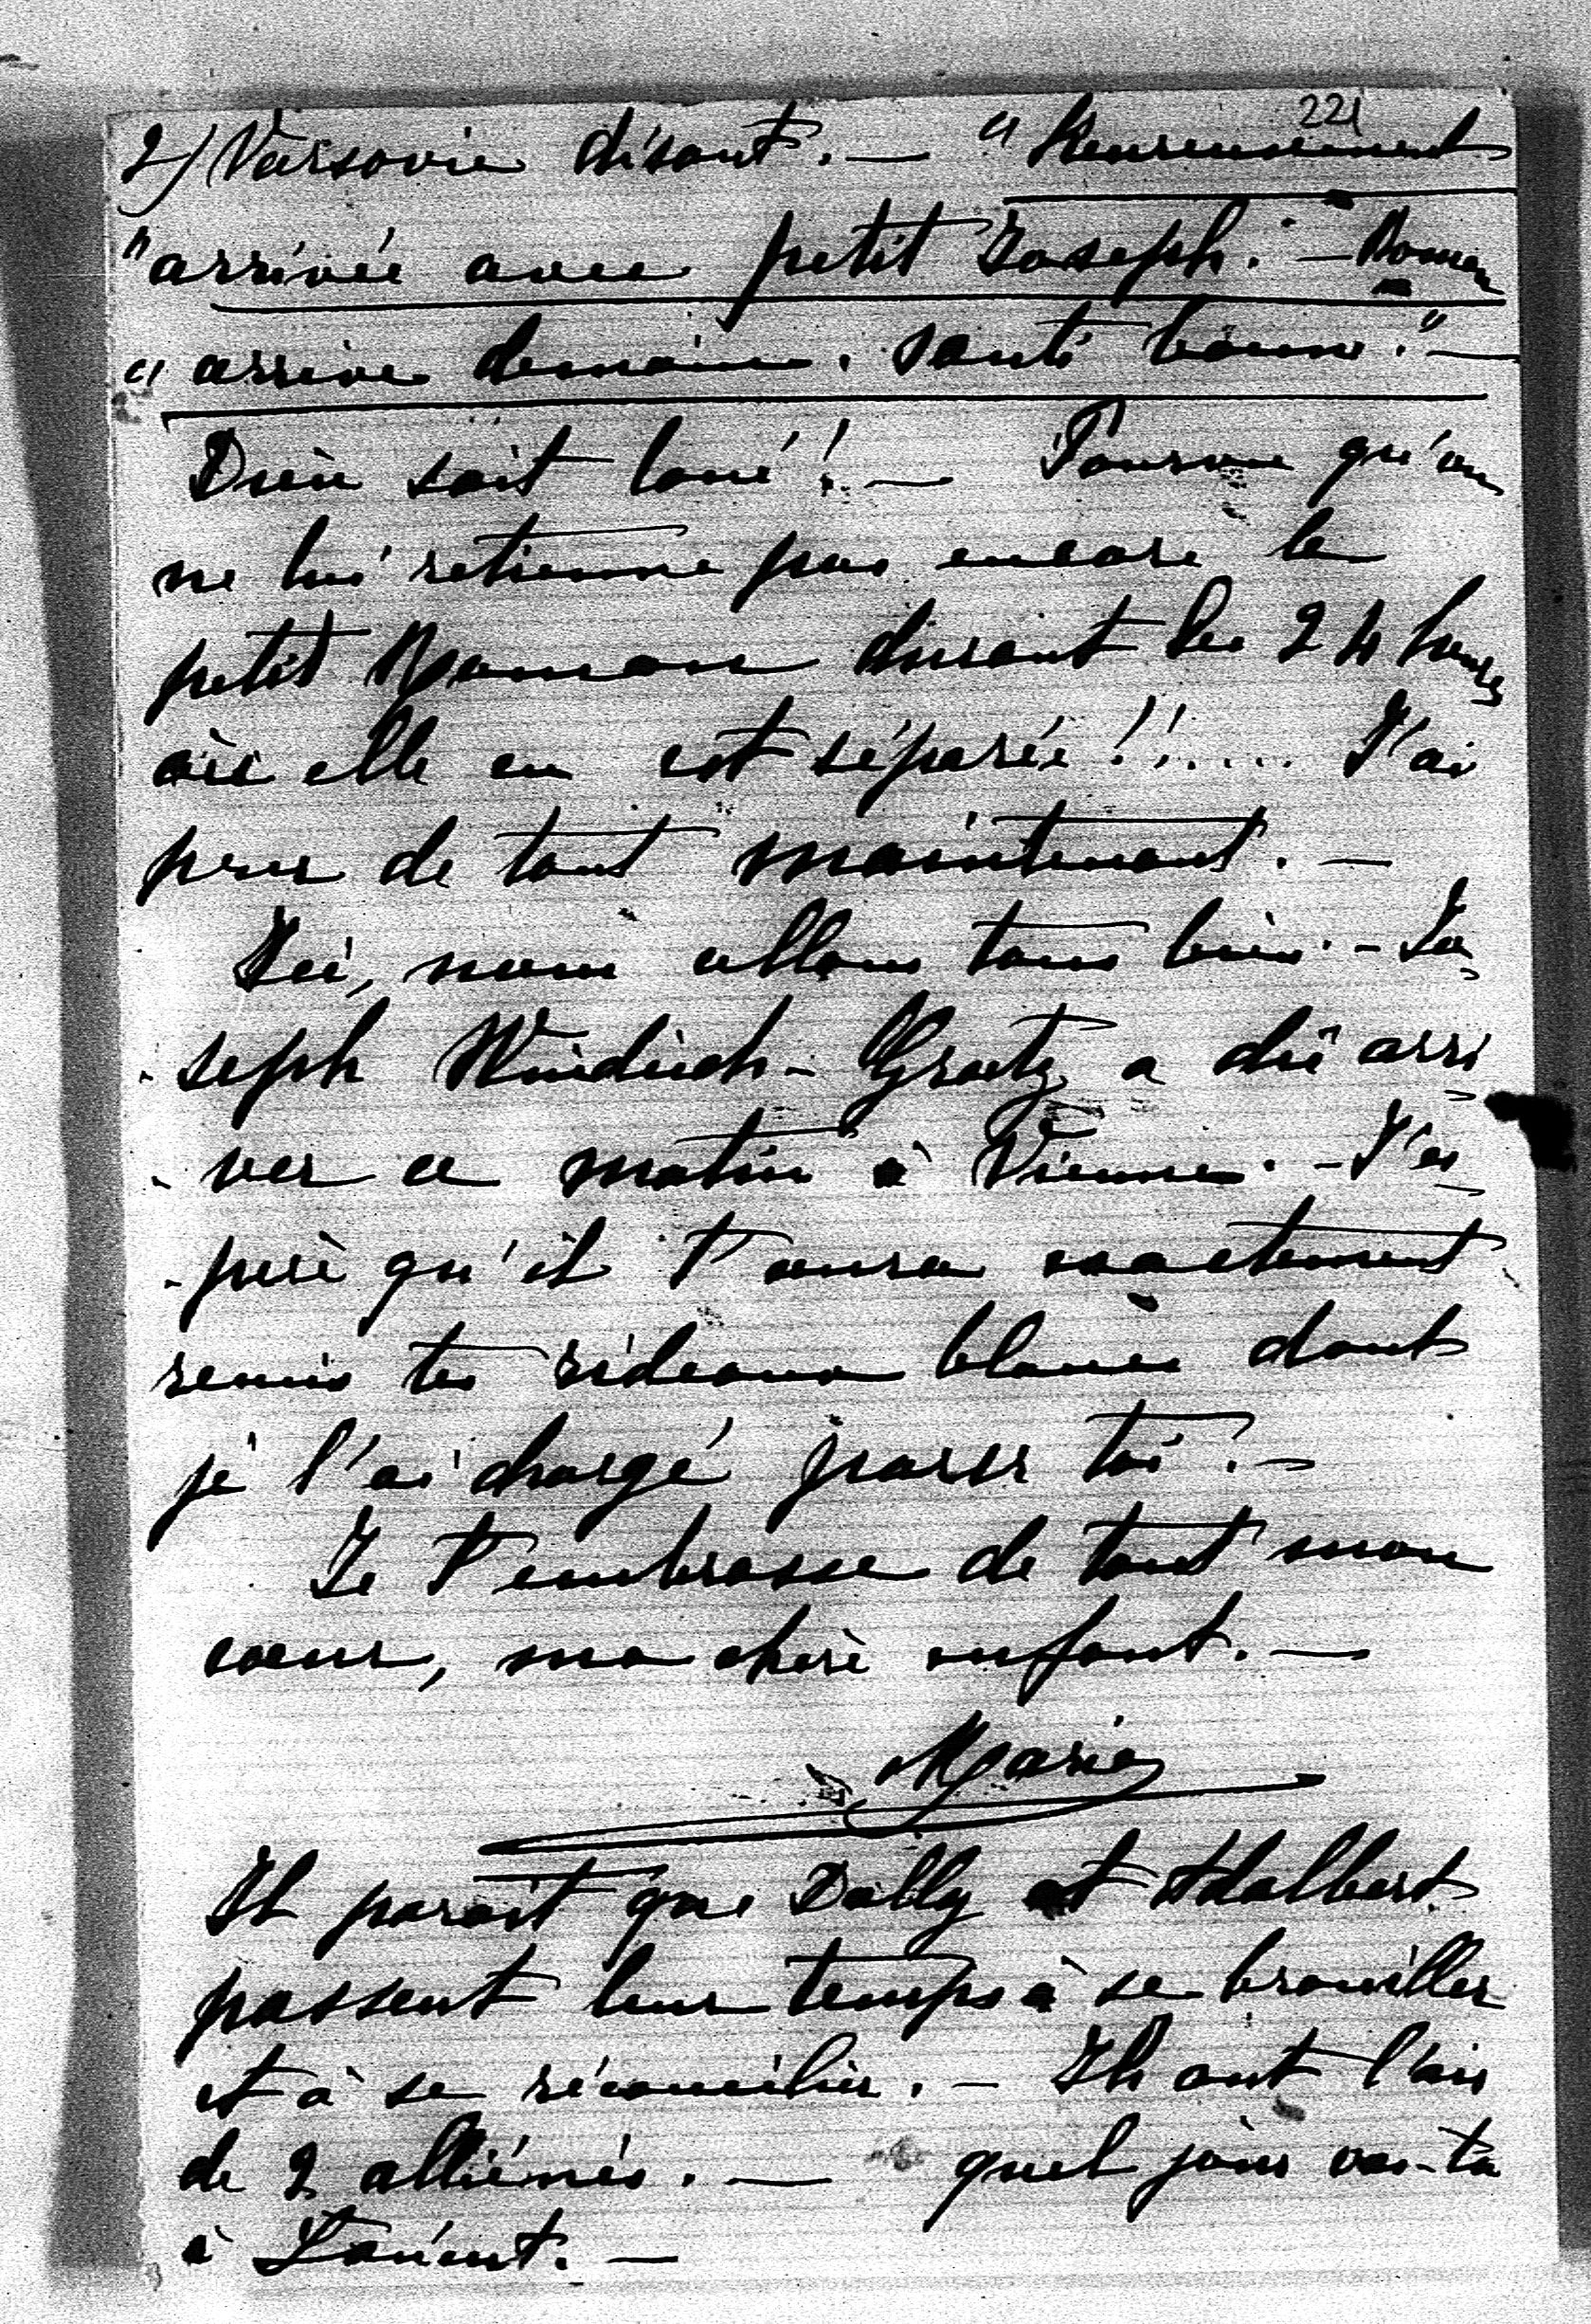 221
2/ Varsovie disant. — "Heureusement
"arrivée avec petit Joseph. — Roman
"arrive demain. Santé bonne." —
Dieu soit loué! — Pourvu qu'on
ne lui retienne pas encore le
petit Roman durant les 24 heures
où elle en est séparée!!.... J'ai
peur de tout maintenant. —
Ici, nous allons tous bien. — Jo-
-seph Windisch-Graetz a dû arri
-ver ce matin à Vienne. — J'es-
-père qu'il t'aura exactement
remis tes rideaux blancs dont
je l'ai chargé pour toi. —
Je t'embrasse de tout mon
coeur, ma chère enfant. —
Marie
Il parait que Dolly et Adalbert
passent leur temps à se brouiller
et à se réconcilier. — Ils ont l'air
de 2 alliénés. — quel jour vas-tu
à Lancut. —